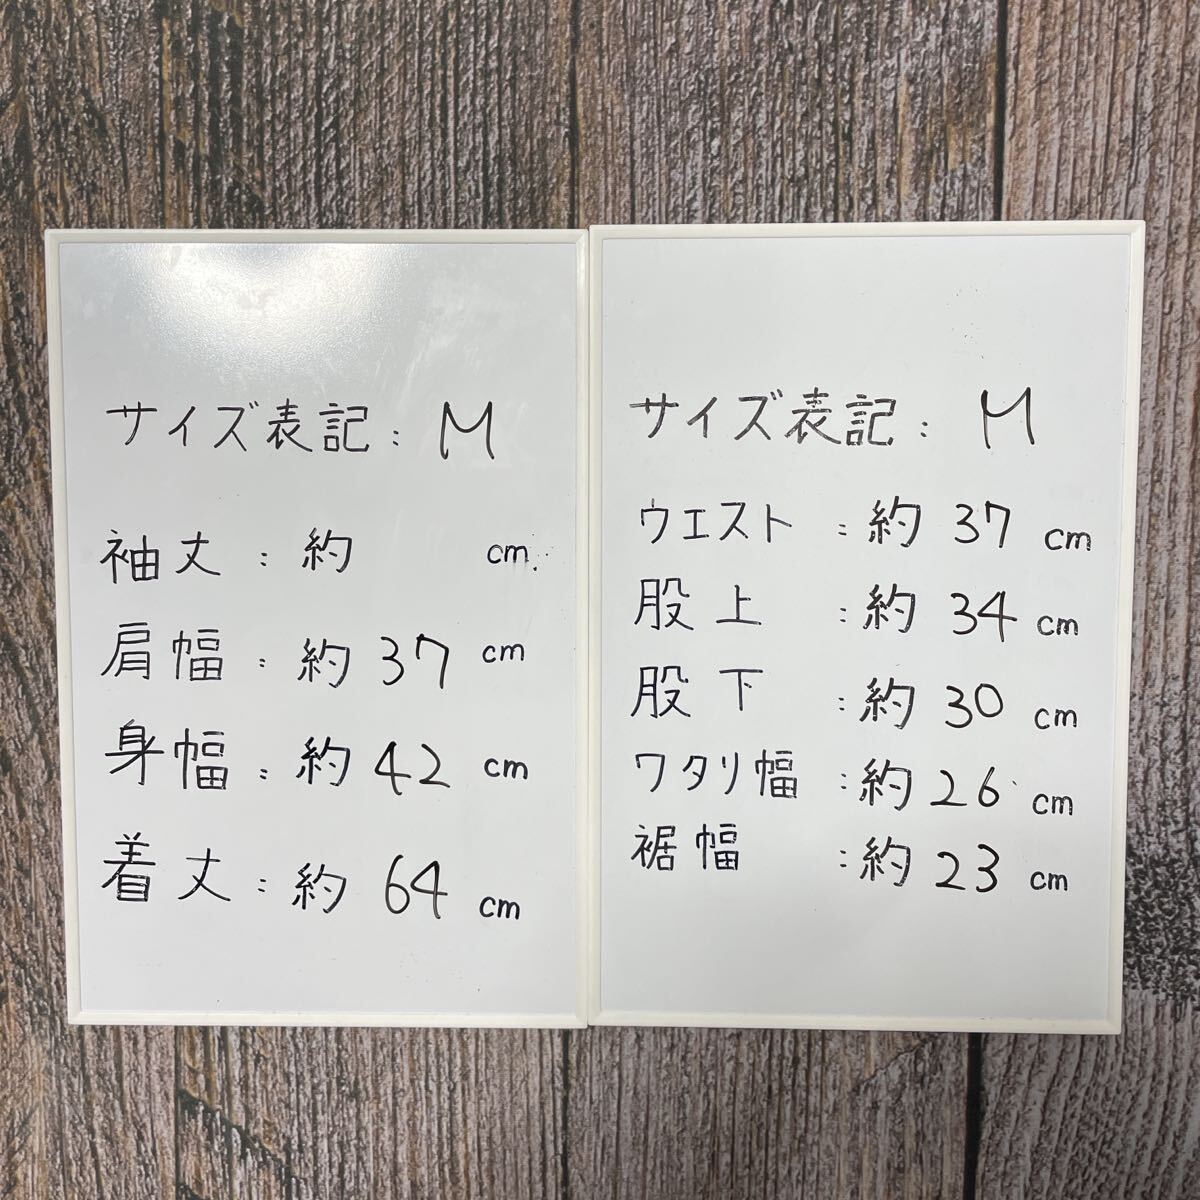 サイズ表記: M
袖丈: 約 cm
肩幅: 約 37 cm
身幅: 約 42 cm
着丈: 約 64 cm
サイズ表記: M
ウエスト: 約 37 cm
股上: 約 34 cm
股下: 約 30 cm
ワタリ幅: 約 26 cm
裾幅: 約 23 cm